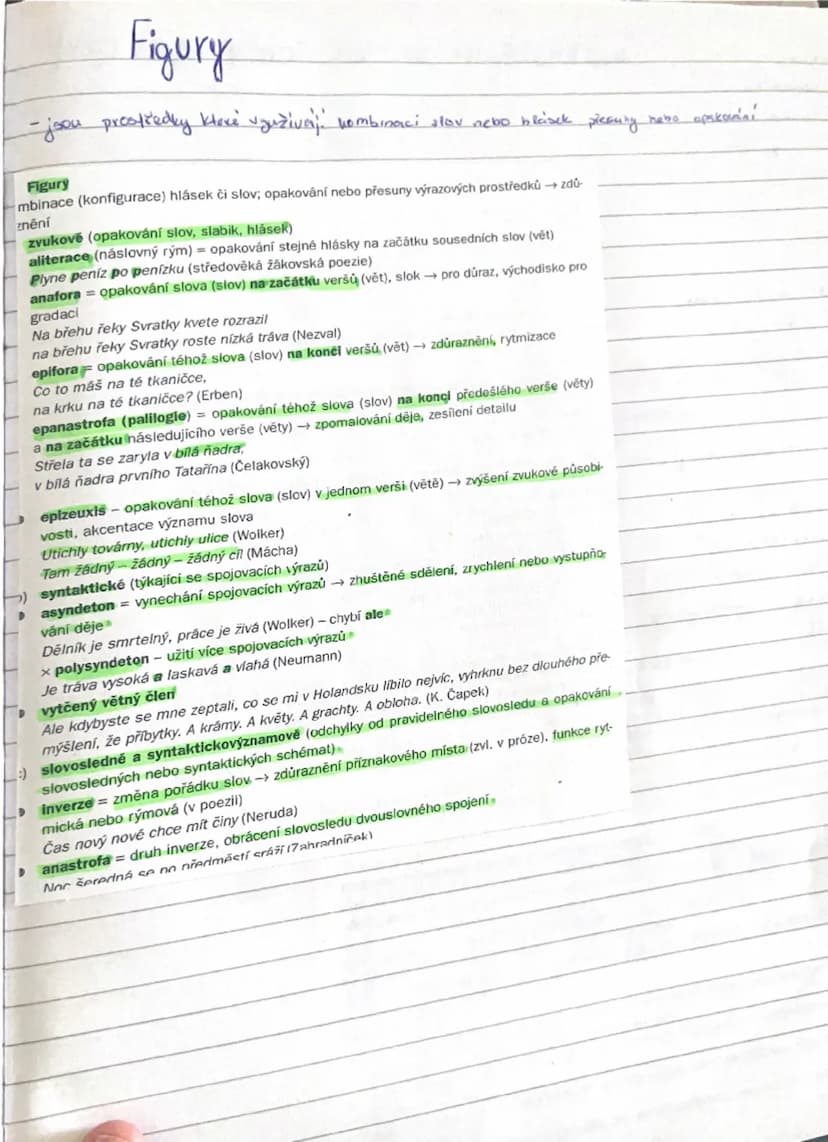 Figury
- jsou prostředky které využívají kombinaci slov nebo hlásek přesuny nebo opakování
Figury
mbinace (konfigurace) hlásek či slov; opakování nebo přesuny výrazových prostředků → zdů-
znění
zvukové (opakování slov, slabik, hlásek)
aliterace (náslovný rým) = opakování stejné hlásky na začátku sousedních slov (vět)
Plyne peníz po penízku (středověká žákovská poezie)
anafora = opakování slova (slov) na začátku veršů (vět), slok → pro důraz, východisko pro
gradaci
Na břehu řeky Svratky kvete rozrazil
na břehu řeky Svratky roste nízká tráva (Nezval)
epifora = opakování téhož slova (slov) na konci veršů (vět) → zdůraznění, rytmizace
Co to máš na té tkaničce,
na krku na té tkaničce? (Erben)
epanastrofa (palilogie) = opakování téhož slova (slov) na konci předešlého verše (věty)
a na začátku následujícího verše (věty) → zpomalování děje, zesílení detailu
Střela ta se zaryla v bílá ňadra,
v bílá ňadra prvního Tatařína (Čelakovský)
epizeuxis – opakování téhož slova (slov) v jednom verši (větě) → zvýšení zvukové působi-
vosti, akcentace významu slova
Utichly továrny, utichly ulice (Wolker)
Tam žádný – žádný – žádný cíl (Mácha)
) syntaktické (týkající se spojovacích výrazů)
asyndeton = vynechání spojovacích výrazů → zhuštěné sdělení, zrychlení nebo vystupňo-
vání děje
Dělník je smrtelný, práce je živá (Wolker) – chybí ale
× polysyndeton – užití více spojovacích výrazů
Je tráva vysoká a laskavá a vlahá (Neumann)
vytčený větný člen
Ale kdybyste se mne zeptali, co se mi v Holandsku líbilo nejvíc, vyhrknu bez dlouhého pře-
mýšlení, že příbytky. A krámy. A květy. A grachty. A obloha. (K. Čapek)
:) slovosledné a syntaktickovýznamové (odchylky od pravidelného slovosledu a opakování
slovosledných nebo syntaktických schémat)
inverze = změna pořádku slov → zdůraznění příznakového místa (zvl. v próze), funkce ryt-
mická nebo rýmová (v poezii)
Čas nový nové chce mít činy (Neruda)
anastrofa = druh inverze, obrácení slovosledu dvouslovného spojení
Noc šeredná se po předměstí sráží (Zahradníček)